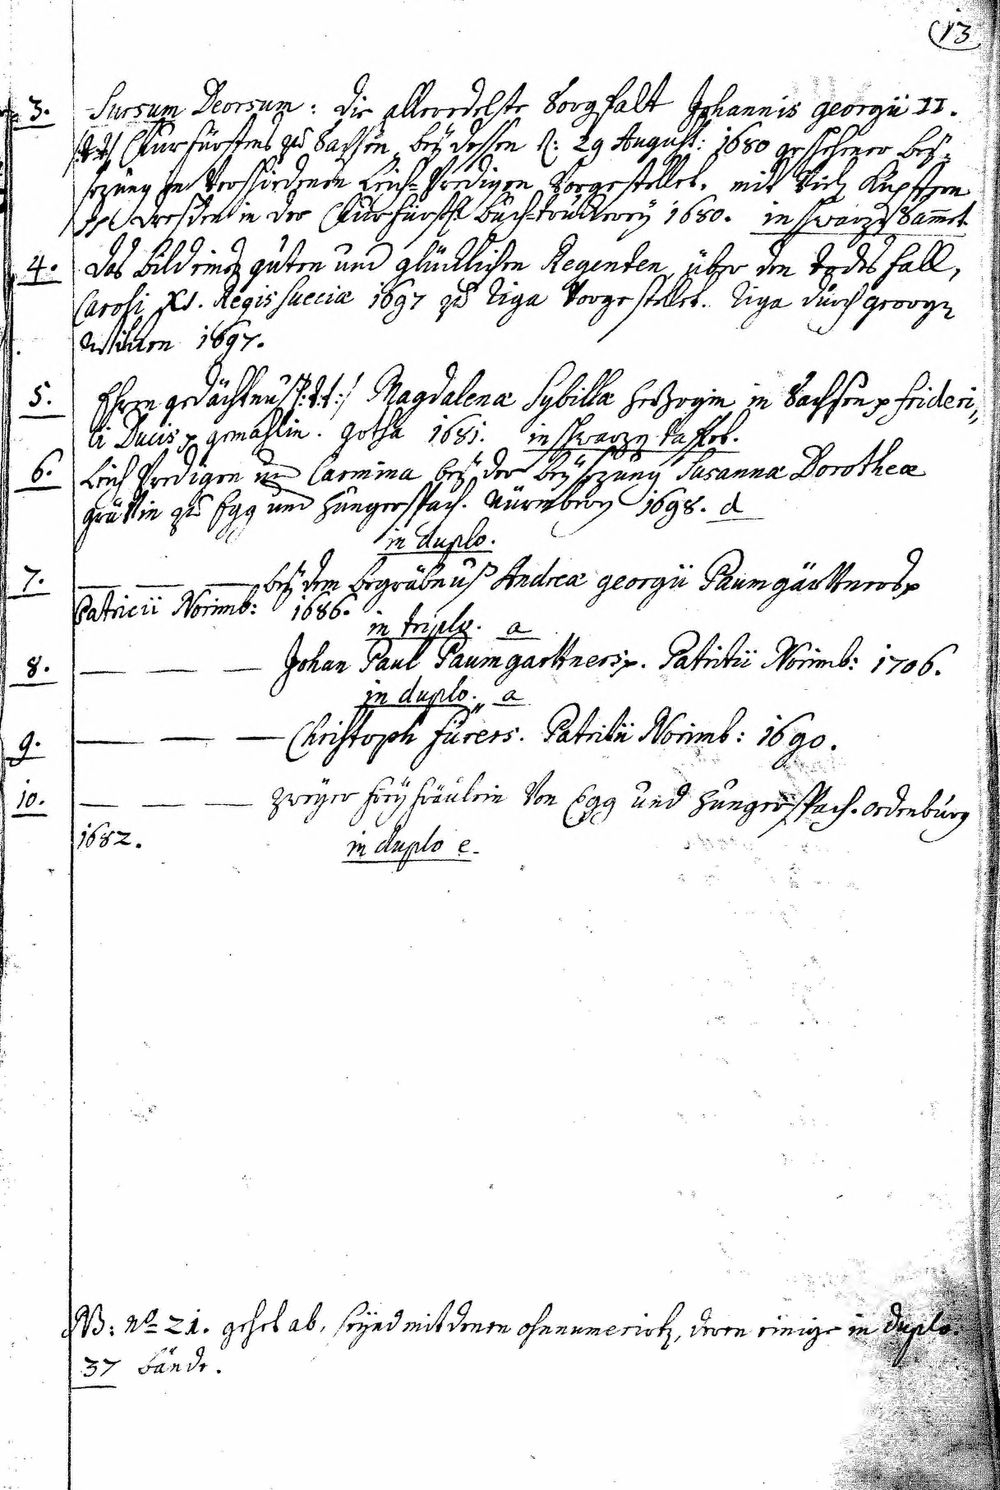 13
3. Sursum Deorsum: die alleredelste Sorgfalt Johannis Georgii II.
Churfürstens zu Sachsen, bey dessen d: 29 August: 1680 geschehener bey-
sezung in verschiedenen Leich-Predigen vorgestellet. mit viel Kupffern
Dresden in der Churfürstl. Buch-druckerey 1680. in schwarz Sammet
4. das Bild eines guten und glücklichen Regenten, über den todes fall,
Caroli XI. Regis Sueciæ 1697 zu Riga vorgestellet. Riga durch Georg
Wilcken 1697.
5. Ehren gedächtnus /:t.t:/ Magdalenæ Sybillæ Herzogin in Sachsen p Frideri-
ci Ducis p gemahlin. Gotha 1681. in schwarzen taffet.
6. Leich Predigen und Carmina bey der beysezung Susannæ Dorotheæ
Gräffin zu Egg und Hungerspach. Nürnberg 1698. d
in duplo.
7. — — — bey dem begräbnuß Andreæ Georgii Paumgärttners p
Patricii Norimb: 1686. in triplo. a
8. — — — Johan Paul Paumgarttners p. Patritii Norimb: 1706.
in duplo. a
9. — — — Christoph Fürers. Patritii Norimb: 1690.
10. — — — zweyer Freyfräulein von Egg und Hungerspach. Ordenburg
1682. in duplo e.
NB: No 21. gehet ab, seynd mit denen ohnnumerirten, deren einige in duplo.
37 bände.